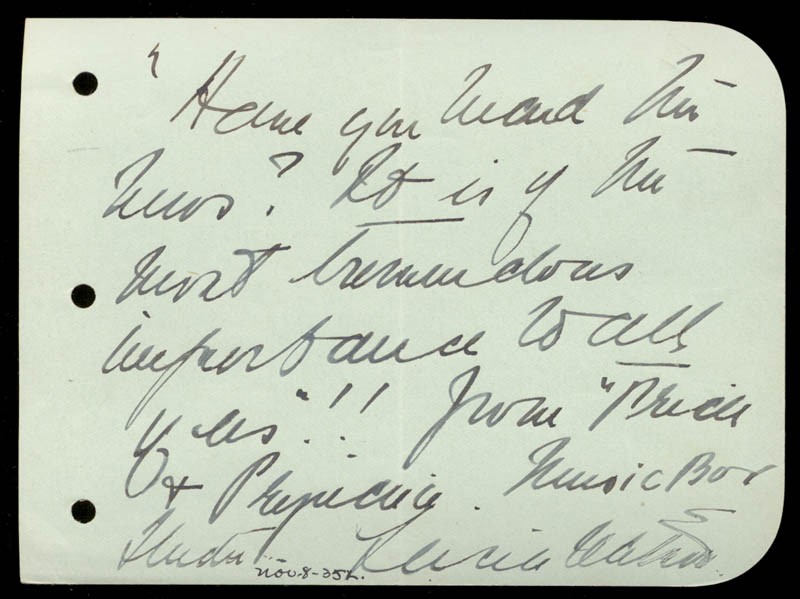 "Have you heard the
news? It is of the
most tremendous
importance to all
of us"!! from "Pride
+ Prejudice. Music Box
Theatre Lucile Watson.
Nov-8-35